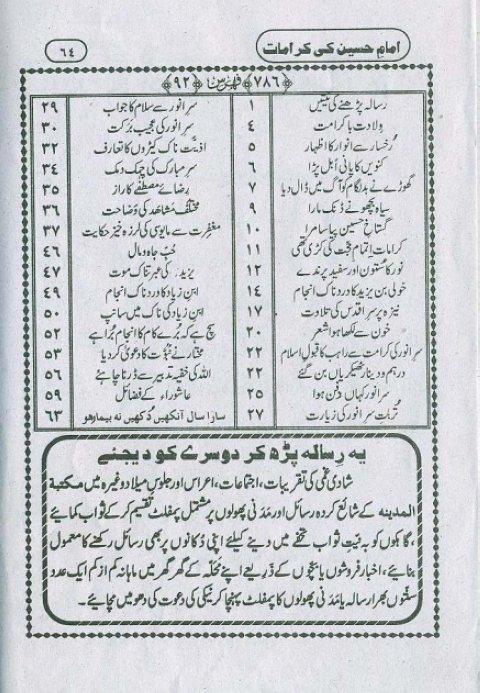 امامِ حسین کی کرامات
٦٤
﴿٧٨٦﴾ فہرس ﴿٩٢﴾
رسالہ پڑھنے کی نیتیں ١
ولادتِ با کرامت ٤
رُخسار سے انوار کا اظہار ٥
کنویں کا پانی اُبل پڑا ٦
گھوڑے نے بدلگام کو آگ میں ڈال دیا ٧
سیاہ بچھو نے ڈنک مارا ٩
گستاخِ حسین پیاسا مرا ١٠
کرامات اِتمامِ حجّت کی کڑی تھی ١١
نور کا ستون اور سفید پرندے ١٢
خولی بن یزید کا دردناک انجام ١٤
نیزہ پر سرِ اقدس کی تلاوت ١٧
خون سے لکھا ہوا شعر ٢٠
سرِ انور کی کرامت سے راہب کا قبولِ اسلام ٢٢
درہم و دینار ٹھیکریاں بن گئے ٢٢
سرِ انور کہاں دفن ہوا ٢٥
تُربتِ سرِ انور کی زیارت ٢٧
سرِ انور سے سلام کا جواب ٢٩
سرِ انور کی عجیب برکت ٣٠
اذیت ناک کیڑوں کا تعارف ٣٢
سرِ مبارک کی چمک دمک ٣٤
رضائے مصطفٰے کا راز ٣٥
مختلف مَشاہد کی وضاحت ٣٦
مغفرت سے مایوسی کی لرزہ خیز حکایت ٣٧
حُبِّ جاہ و مال ٤٦
یزید کی عبرتناک موت ٤٧
ابنِ زیاد کا دردناک انجام ٤٩
ابنِ زیاد کی ناک میں سانپ ٥٠
سچ ہے کہ بُرے کام کا انجام بُرا ہے ٥٢
مختار نے نبُوّت کا دعویٰ کر دیا ٥٣
اللہ کی خفیہ تدبیر سے ڈرنا چاہئے ٥٦
عاشوراء کے فضائل ٥٩
سارا سال آنکھیں دُکھیں نہ بیمار ھو ٦٣
یہ رِسالہ پڑھ کر دوسرے کو دیجئے
شادی غمی کی تقریبات، اجتماعات، اعراس اور جلوسِ میلاد وغیرہ میں مکتبۃ
المدینہ کے شائع کردہ رسائل اور مَدَنی پھولوں پر مشتمل پمفلٹ تقسیم کر کے ثواب کمائیے
، گاہکوں کو بہ نیتِ ثواب تحفے میں دینے کیلئے اپنی دُکانوں پر بھی رسائل رکھنے کا معمول
بنائیے، اخبار فروشوں یا بچّوں کے ذَرِیعے اپنے محلّہ کے گھر گھر میں ماہانہ کم از کم ایک عدد
سنّتوں بھرا رسالہ یا مَدَنی پھولوں کا پمفلٹ پہنچا کر نیکی کی دعوت کی دھومیں مچائیے۔